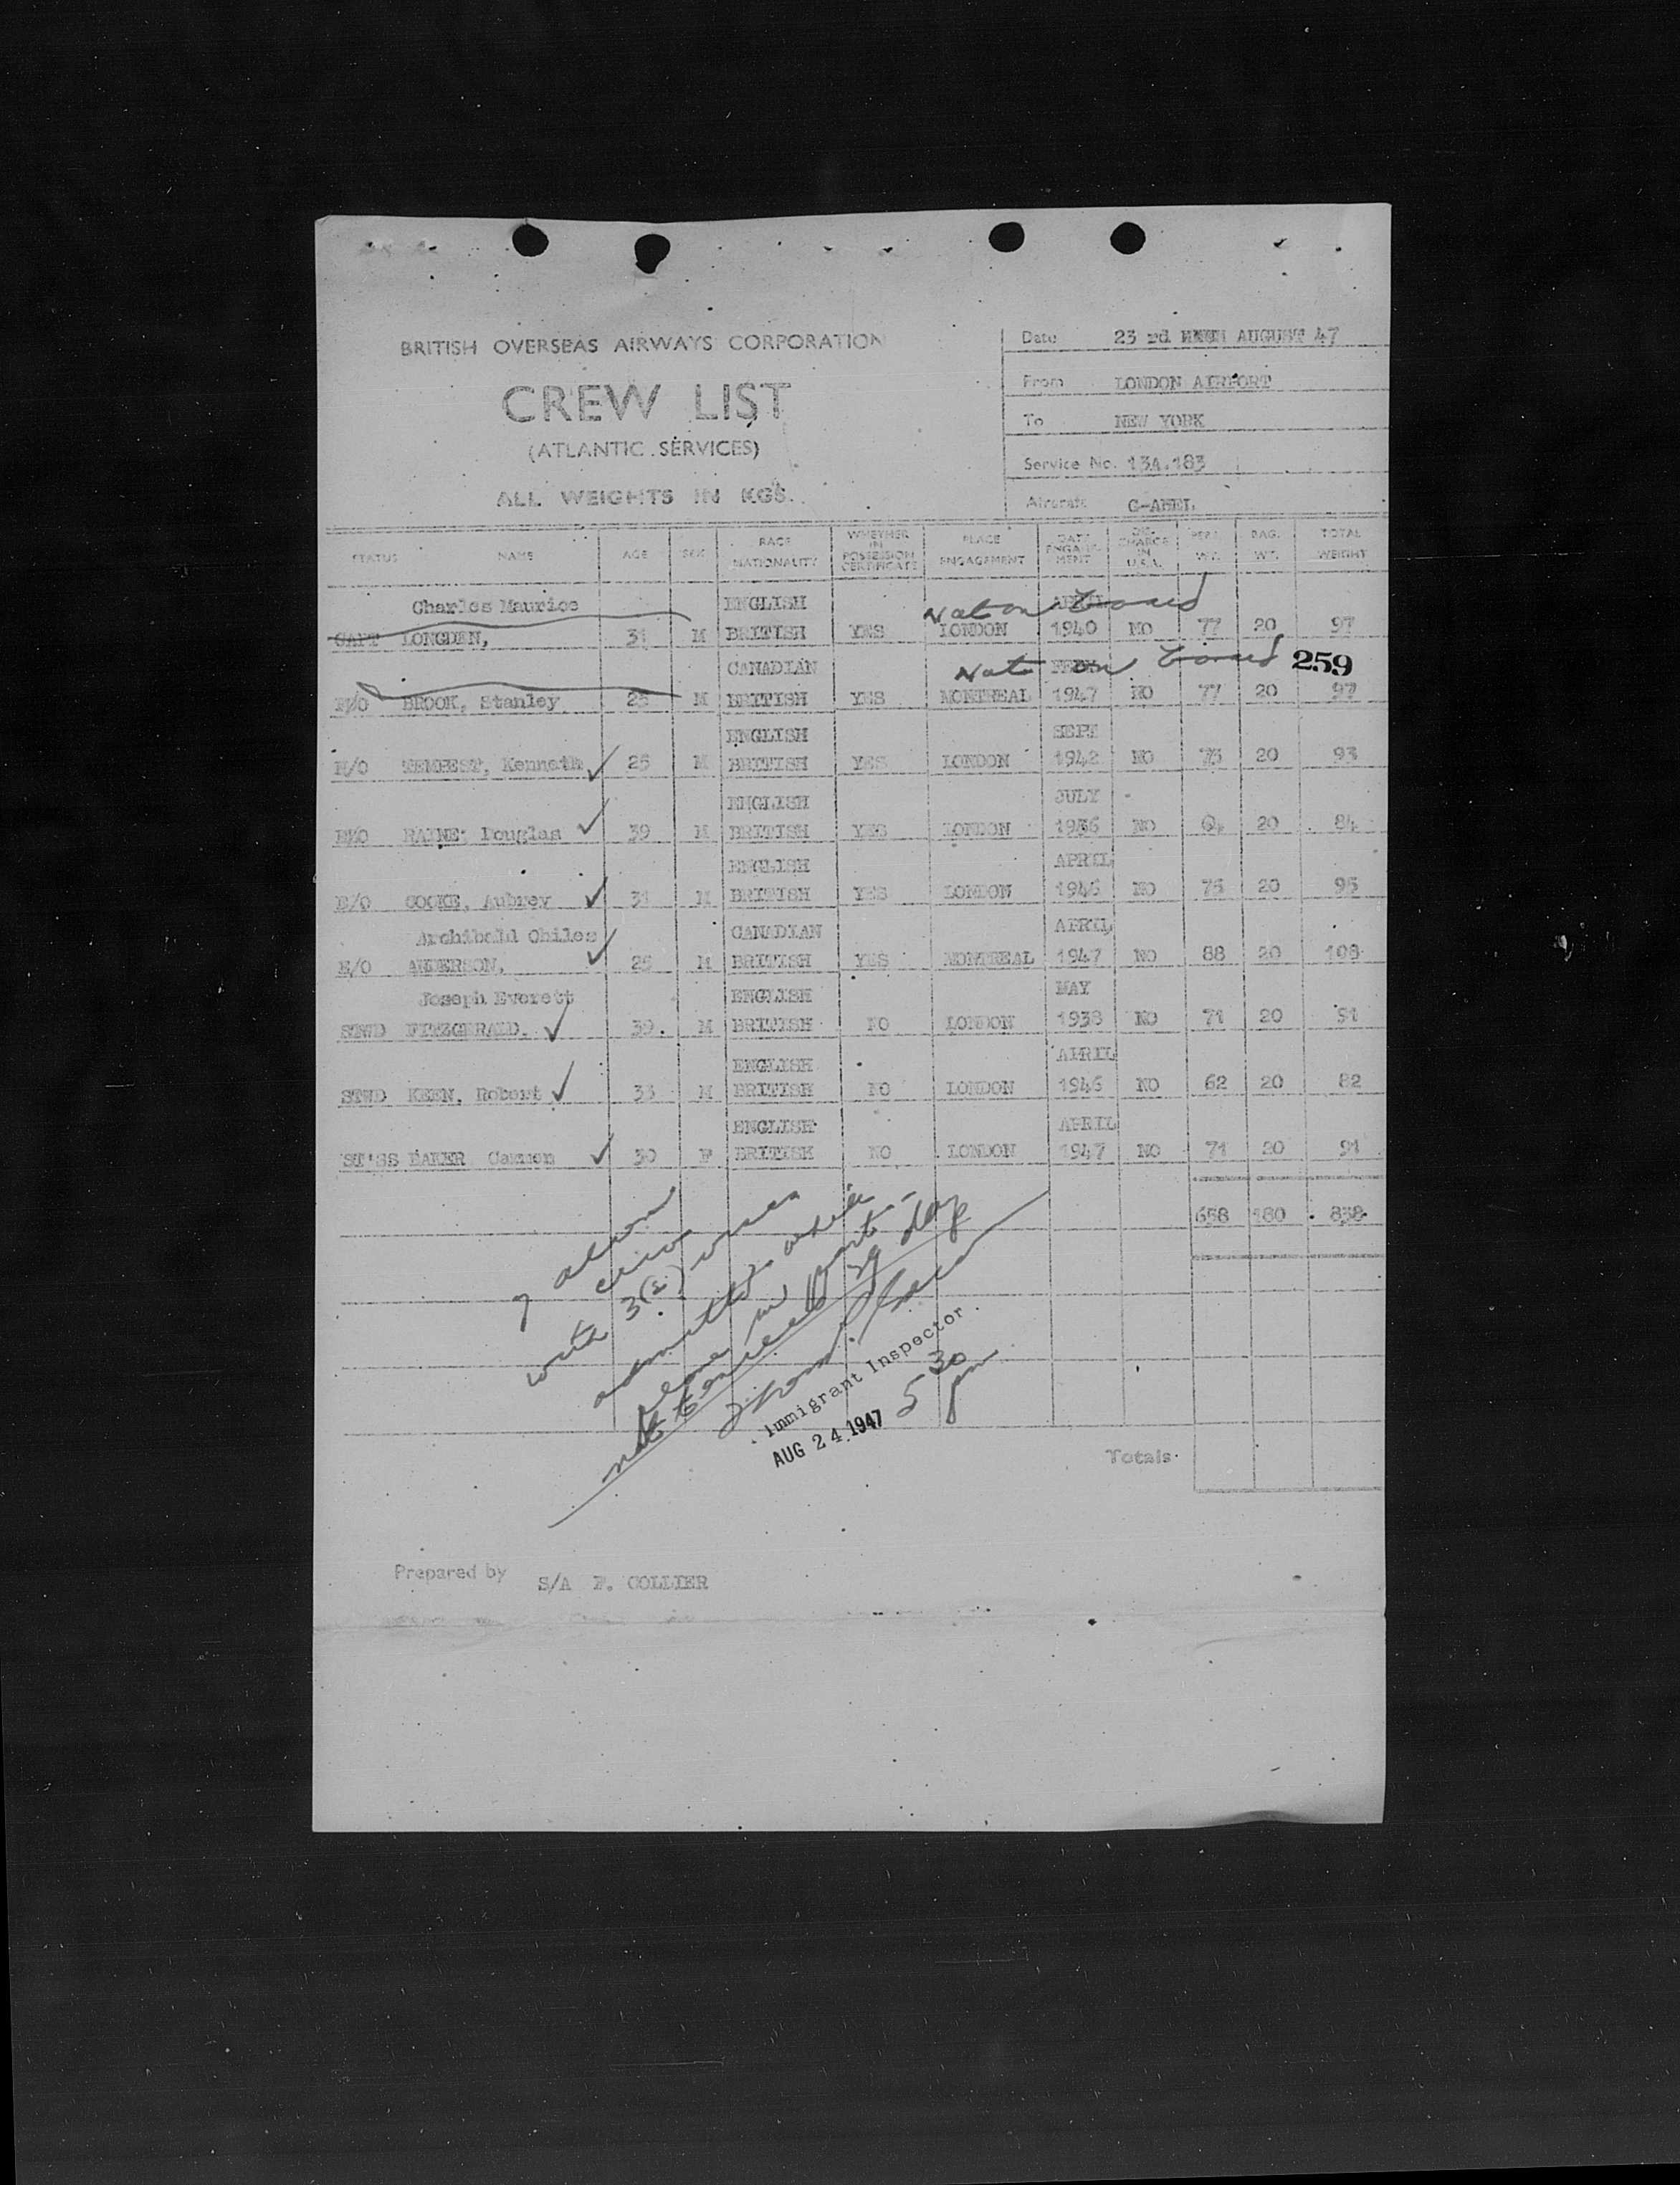 BRITISH OVERSEAS AIRWAYS CORPORATION
CREW LIST
(ATLANTIC SERVICES)
ALL WEIGHTS IN KGS.
Date 23 rd AUGUST 47
From LONDON AIRPORT
To NEW YORK
Service No. 134.183
Aircraft
STATUS NAME AGE SEX RACE NATIONALITY WHETHER IN POSSESSION CERTIFICATE PLACE ENGAGEMENT DATE ENGAGE-MENT DIS-CHARGE IN U.S.A. PERS. WT. BAG. WT. TOTAL WEIGHT
Charles Maurice ENGLISH Not on board APRIL
CAPT LONGDEN, 31 M BRITISH YES LONDON 1940 NO 77 20 97
CANADIAN Not on board 259
BROOK, Stanley 25 M BRITISH YES MONTREAL 1947 NO 77 20 97
ENGLISH SEPT
TEMPEST, Kenneth ✓ 25 M BRITISH YES LONDON 1942 NO 73 20 93
ENGLISH JULY
RAINE, Douglas ✓ 39 M BRITISH YES LONDON 1936 NO 64 20 84
ENGLISH APRIL
COOKE, Aubrey ✓ 31 M BRITISH YES LONDON 1946 NO 75 20 95
Archibald Chiles CANADIAN APRIL
ANDERSON, ✓ 25 M BRITISH YES MONTREAL 1947 NO 88 20 108
Joseph Everett ENGLISH MAY
STWD FITZGERALD. ✓ 39. M BRITISH NO LONDON 1938 NO 71 20 91
ENGLISH APRIL
STWD KEEN, Robert ✓ 33 M BRITISH NO LONDON 1946 NO 62 20 82
ENGLISH APRIL
ST'SS BAKER Carmen ✓ 30 F BRITISH NO LONDON 1947 NO 71 20 91
658 180 838
7 alien
crew
with 3(5) visas
admitted while
plane in port -
not to exceed 29 day
Immigrant Inspector
AUG 24 1947
5 30 pm
Totals
Prepared by S/A F. COLLIER